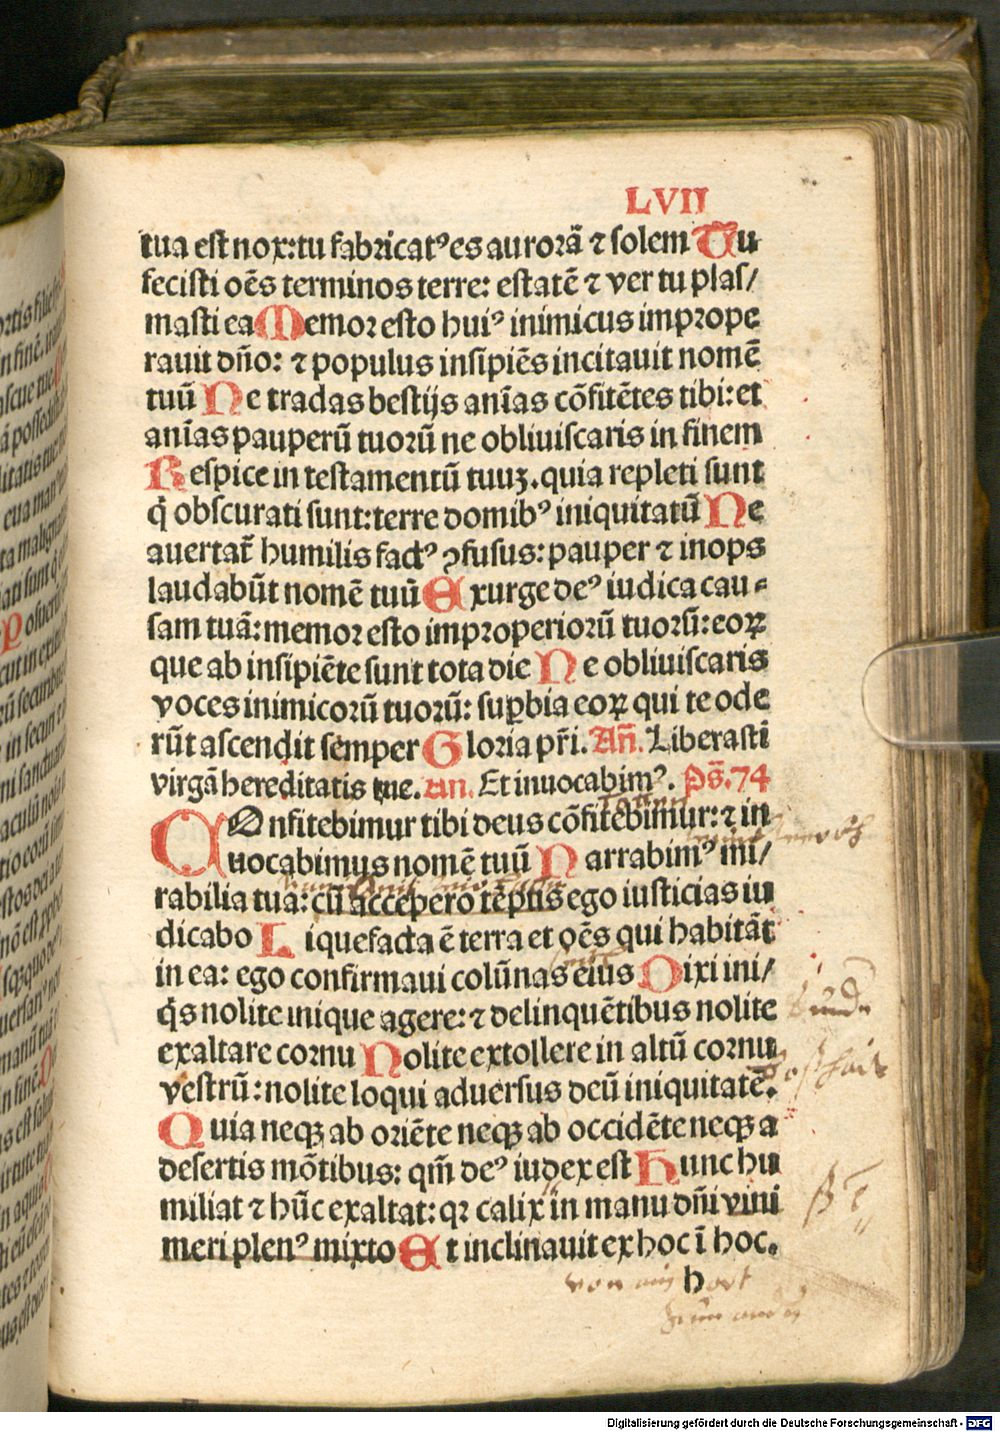 LVII
tua est nox: tu fabricatꝰ es aurorā ⁊ solem Tu
fecisti oēs terminos terre: estatē ⁊ ver tu plas/
masti ea Memor esto huiꝰ inimicus imprope
rauit dño: ⁊ populus insipiēs incitauit nomē
tuū Ne tradas bestijs anīas cōfitētes tibi: et
anīas pauperū tuorū ne obliuiscaris in finem
Respice in testamentū tuuʒ. quia repleti sunt
q̇ obscurati sunt: terre domibꝰ iniquitatū Ne
auertat̄ humilis factꝰ ꝯfusus: pauper ⁊ inops
laudabūt nomē tuū Exurge deꝰ iudica cau-
sam tuā: memor esto improperiorū tuorū: eoꝝ
que ab insipiēte sunt tota die Ne obliuiscaris
voces inimicorū tuorū: suꝑbia eoꝝ qui te ode
rūt ascendit semper Gloria pr̄i. Añ. Liberasti
virgā hereditatis tue. An. Et inuocabimꝰ. Ps̄. 74
COnfitebimur tibi deus cōfitebimur: ⁊ in
uocabimus nomē tuū Narrabimꝰ mi/
rabilia tua: cū accepero tēptis ego iusticias iu
dicabo Liquefacta ē terra et oēs qui habitāt
in ea: ego confirmaui colūnas eius Dixi ini/
q̇s nolite inique agere: ⁊ delinquētibus nolite
exaltare cornu Nolite extollere in altū cornu
vestrū: nolite loqui aduersus deū iniquitatē.
Quia neqꝫ ab oriēte neqꝫ ab occidēte neqꝫ a
desertis mōtibus: qm̄ deꝰ iudex est Hunc hu
miliat ⁊ hūc exaltat: qꝛ calix in manu dñi vini
meri plenꝰ mixto Et inclinauit ex hoc ī hoc.
h
Digitalisierung gefördert durch die Deutsche Forschungsgemeinschaft - DFG